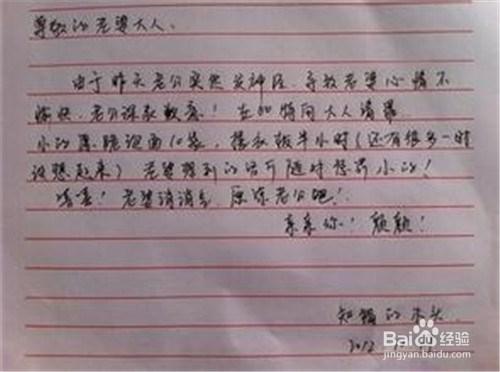 尊敬的老婆大人:
由于昨天老公突然发神经,导致老婆心情不
愉快,老公深表歉意!在此特向大人请罪
小的愿跪泡面10袋,搓衣板半小时(还有很多一时
没想起来)老婆想到的话可随时惩罚小的!
嘻嘻!老婆消消气,原谅老公吧!
亲亲你!
知错的木头
2012
Baidu经验
jingyan.baidu.com